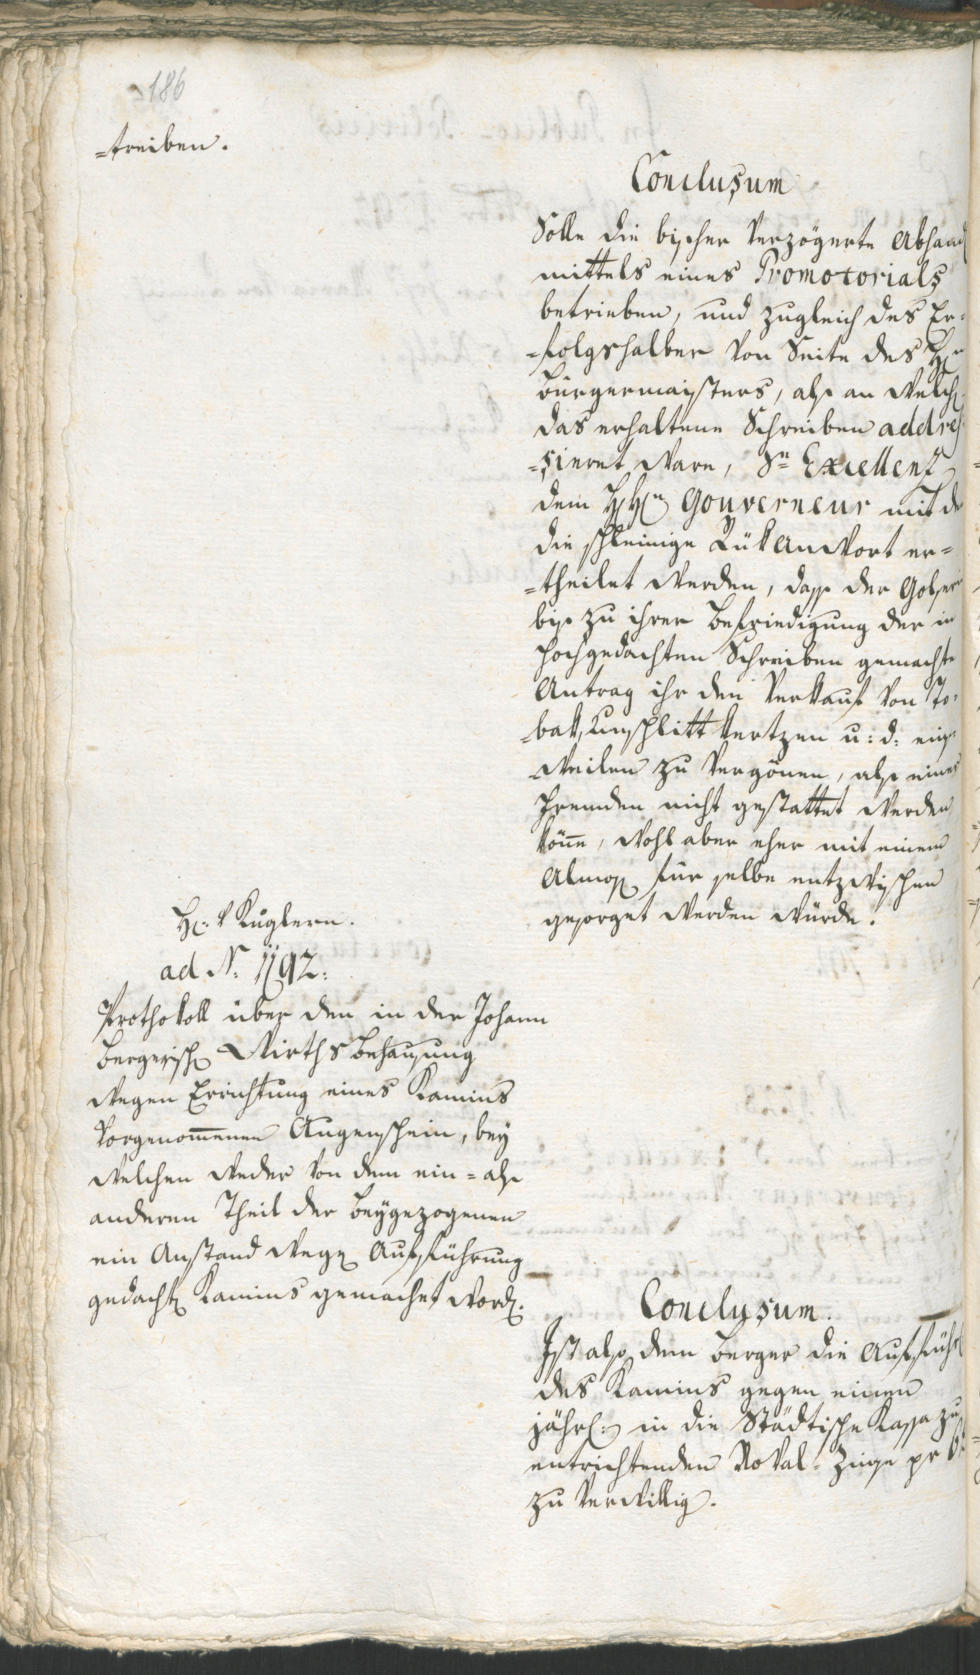 186
=treiben.
Conclusum
Solle die bisher verzögerte Abhand
mittels eines Promotorials
betrieben, und zugleich des Er=
=folgshalber von Seite des H:
Bürgermaisters, als an welch
das erhaltene Schreiben addres
=sieret ware, Sr Excellenz
dem H: H: Gouverneur mit
die schleinige Rükantwort er=
=theilet werden, dass der
bis zu ihrer Befriedigung der in
hochgedachten Schreiben gemachte
Antrag ihr den Verkauf von To=
=bak, Unschlitt kertzen u: d:
=weilen zu vergönen, als eine
fremden nicht gestattet werden
köne, wohl aber eher mit einem
Almos für selbe entzwischen
gesorget werden würde.
H: v Kuglern.
ad N: 1192:
Prothokoll über den in der Johann
Bergerisch Wirths Behausung
wegen Errichtung eines Kamins
vorgenommenen Augenschein, bey
welchen weder von dem ein= als
anderen Theil der beygezogenen
ein Anstand wege Aufführung
gedacht Kamins gemachet word.
Conclusum.
Ist also dem Berger die Aufführ
des Kamins gegen einen
jährl: in die Städtische Kassa zu
entrichtenden Zinse pr
zu verwillig.